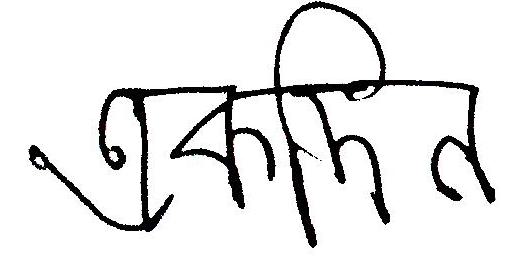 একদিন